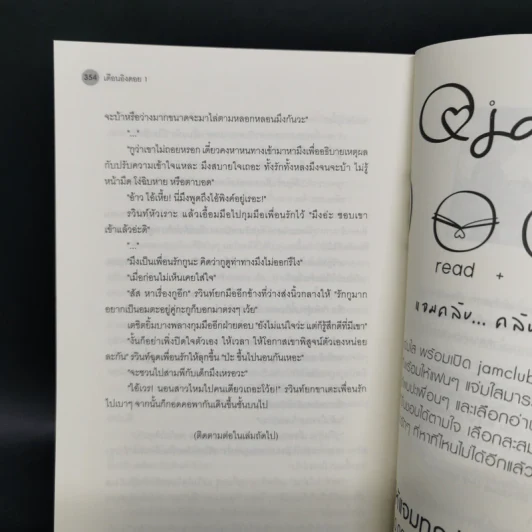 354 เดือนอิงดอย 1
จะบ้าหรือว่างมากขนาดจะมาไล่ตามหลอกหลอนมึงกันวะ"
"..."
"กูว่าเขาไม่ถอยหรอก เดี๋ยวคงหาหนทางเข้ามาหามึงเพื่ออธิบายเหตุผล
กับปรับความเข้าใจแหละ มึงสบายใจเถอะ ทั้งรักทั้งหลงมึงจนจะบ้า ไม่รู้
หน้ามืด โง่ฉิบหาย หรือตาบอด"
"อ้าว ไอ้เหี้ย! นี่มึงพูดถึงไอ้พิงค์อยู่เรอะ!"
รวินท์หัวเราะ แล้วเอื้อมมือไปกุมมือเพื่อนรักไว้ "มึงอ่ะ ชอบเขา
เข้าแล้วอ่ะดิ"
"..."
"มึงเป็นเพื่อนรักกูนะ คิดว่ากูดูท่าทางมึงไม่ออกรึไง"
"เมื่อก่อนไม่เห็นเคยใส่ใจ"
"สัส หาเรื่องกูอีก" รวินท์ยกมืออีกข้างที่ว่างส่งนิ้วกลางให้ "รักกูมาก
อยากเป็นอมตะอยู่คู่กะกูก็บอกมาตรงๆ เว้ย"
เตชิตยิ้มบางพลางกุมมืออีกฝ่ายตอบ "ยังไม่แน่ใจว่ะ แต่ก็รู้สึกดีที่มีเขา"
"งั้นก็อย่าเพิ่งปิดใจตัวเอง ให้เวลา ให้โอกาสเขาพิสูจน์ตัวเองหน่อย
ละกัน" รวินท์ฉุดเพื่อนรักให้ลุกขึ้น "ปะ ขึ้นไปนอนกันเหอะ"
"จะชวนไปสามพีกับเด็กมึงเหรอวะ"
"ไอ้เวร! นอนสาวไหมไปคนเดียวเถอะไว้ย!" รวินท์ยกขาเตะเพื่อนรัก
ไปเบาๆ จากนั้นก็กอดคอพากันเดินขึ้นชั้นบนไป
(ติดตามต่อในเล่มถัดไป)
read +
แจ่มคลับ... คลับ
ใส พร้อมเปิด jamclub
พร้อมให้แฟนๆ แจ่มใสมาร
เพื่อนๆ และเลือกอ่า
ได้ตามใจ เลือกสะสม
ๆ ที่หาที่ไหนไม่ได้อีกแล้ว